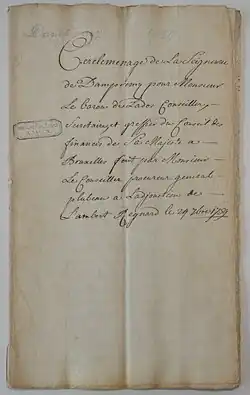 Cerclemenage de La Seigneurie
de Dampremy pour Monsieur
Le baron de Lados Conseiller
Secretaire et greffier du Conseil des
finances de Sa Majesté a
Bruxelles fait par Monsieur
Le Conseiller procureur general
a Ladjonction de
Lambert Mignard le 29 7bre 1759